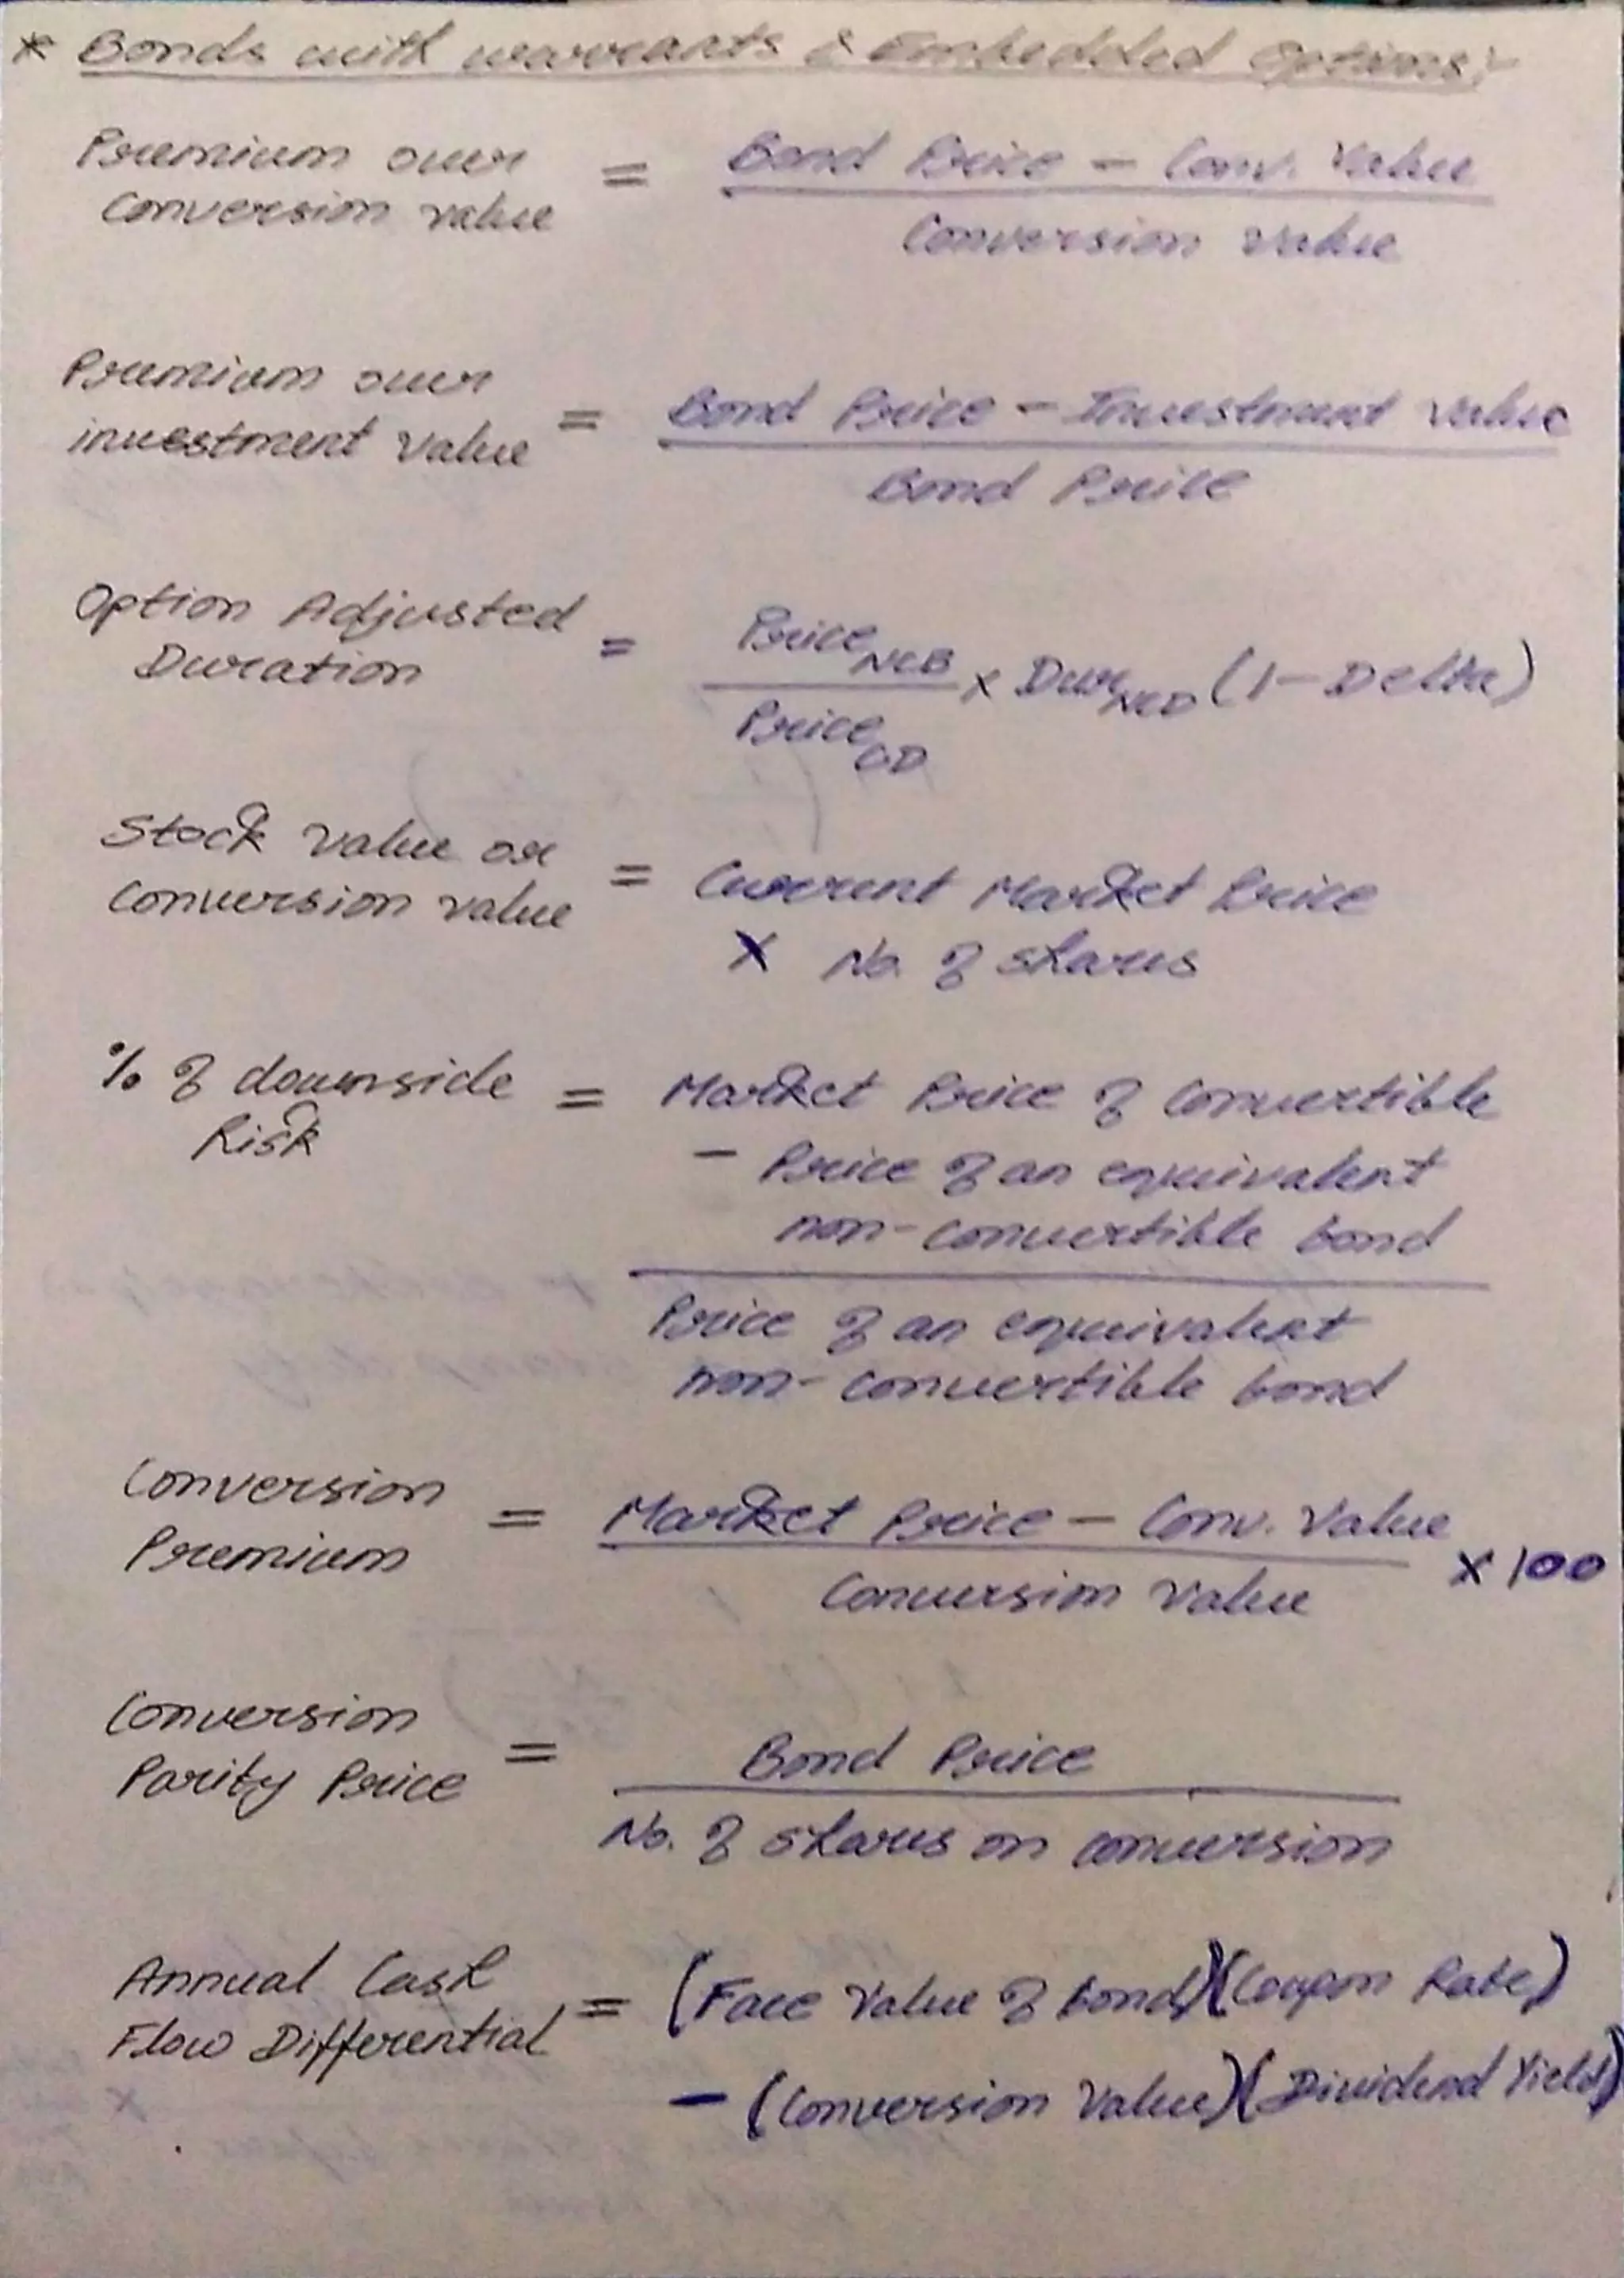 * Bonds with warrants & Embedded Options:-
Premium over
Conversion value
=
Bond Price - Conv. Value
Conversion Value
Premium over
investment value
=
Bond Price - Investment value
Bond Price
Option Adjusted
Duration
=
Price NCB
Price CD
x Dur NCD (1-Delta)
Stock value or
Conversion value
=
Current Market Price
x No. of shares
% of downside
Risk
=
Market Price of Convertible
- Price of an equivalent
non-convertible bond
Price of an equivalent
non-convertible bond
Conversion
Premium
=
Market Price - Conv. Value
Conversion Value
x 100
Conversion
Parity Price
=
Bond Price
No. of shares on conversion
Annual Cash
Flow Differential
=
(Face Value of bond)(Coupon Rate)
- (Conversion Value)(Dividend Yield)